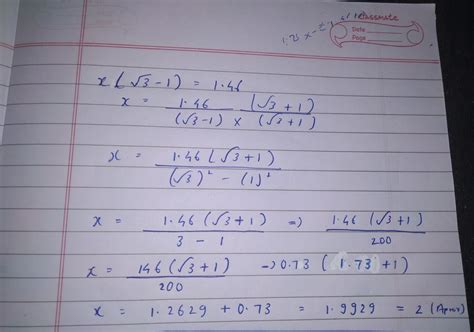 classmate
Date
Page
x(√3-1) = 1.46
x = 1.46 (√3+1) / (√3-1) x (√3+1)
x = 1.46(√3+1) / (√3)² - (1)²
x = 1.46(√3+1) / 3-1 => 1.46(√3+1) / 200
x = 146(√3+1) / 200 -> 0.73 (1.73+1)
x = 1.2629 + 0.73 = 1.9929 = 2